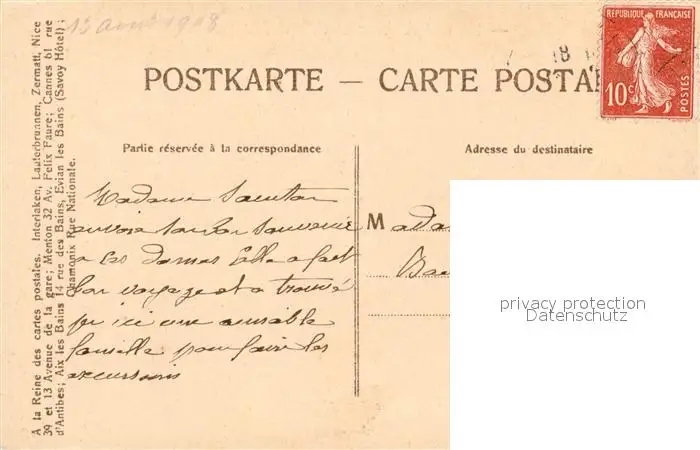 13 avril 1908
POSTKARTE — CARTE POSTA
RÉPUBLIQUE FRANÇAISE
10c
POSTES
18
Partie réservée à la correspondance
Adresse du destinataire
A la Reine des cartes postales. Interlaken, Lauterbrunnen, Zermatt, Nice
39 et 13 Avenue de la gare; Menton 32 Av. Felix Faure; Cannes 61 rue
d'Antibes; Aix les Bains 14 rue des Bains, Evian les Bains (Savoy Hôtel);
Chamonix Rue Nationale.
Madame
envoie souvenir
a ces dames Elle a fait
bon voyage et a trouvé
ici une aimable
famille pour faire les
excursions
Mada
privacy protection
Datenschutz